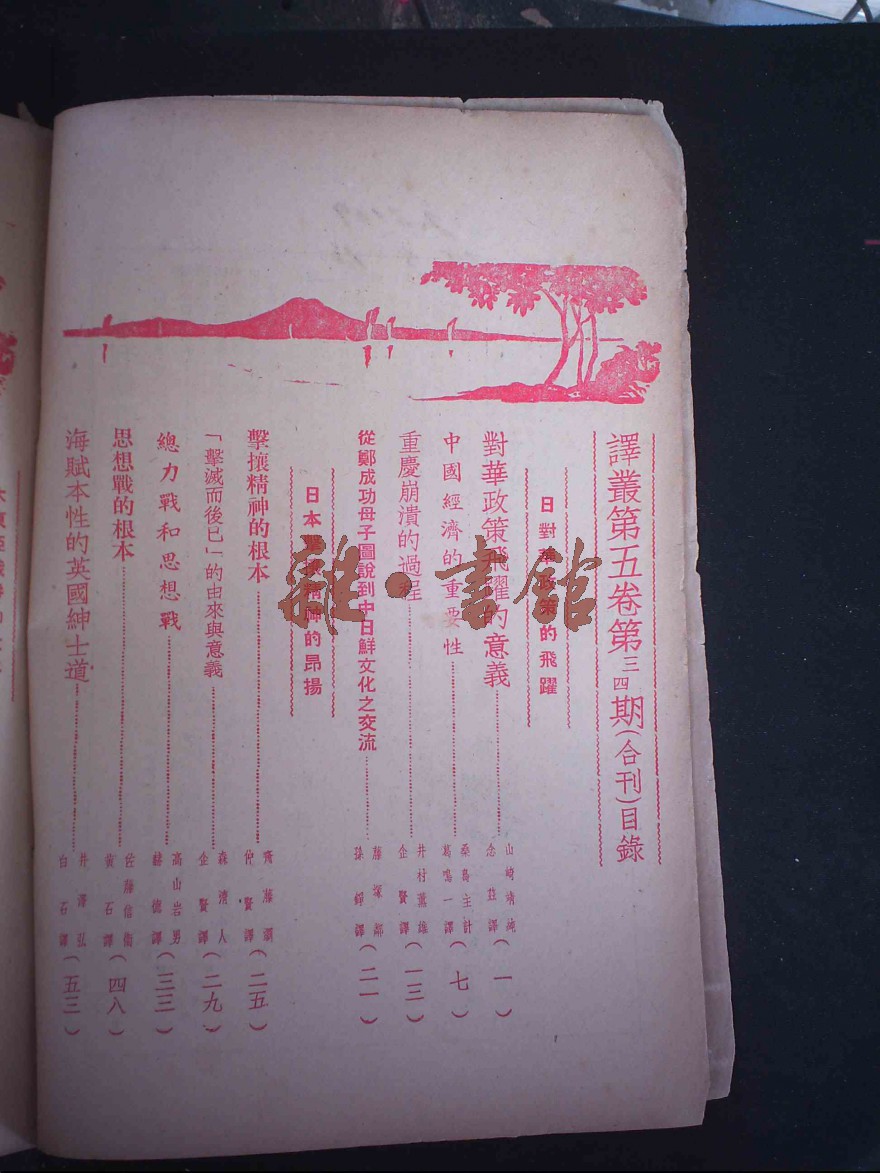 譯叢第五卷第三四期(合刊)目錄
日對華政策的飛躍
對華政策飛躍的意義 山崎靖純 念茲譯(一)
中國經濟的重要性 桑島主計 葛鳴一譯(七)
重慶崩潰的過程 井村薰雄 企賢譯(一三)
從鄭成功母子圖說到中日鮮文化之交流 藤塚鄰 孫 譯(二一)
日本 精神的昂揚
擊攘精神的根本 齋藤瀏 仲賢譯(二五)
「擊滅而後已」的由來與意義 森清人 企賢譯(二九)
總力戰和思想戰 高山岩男 赫德譯(三三)
思想戰的根本 佐藤信衛 黃石譯(四八)
海賊本性的英國紳士道 井澤弘 白石譯(五三)
雜·書館